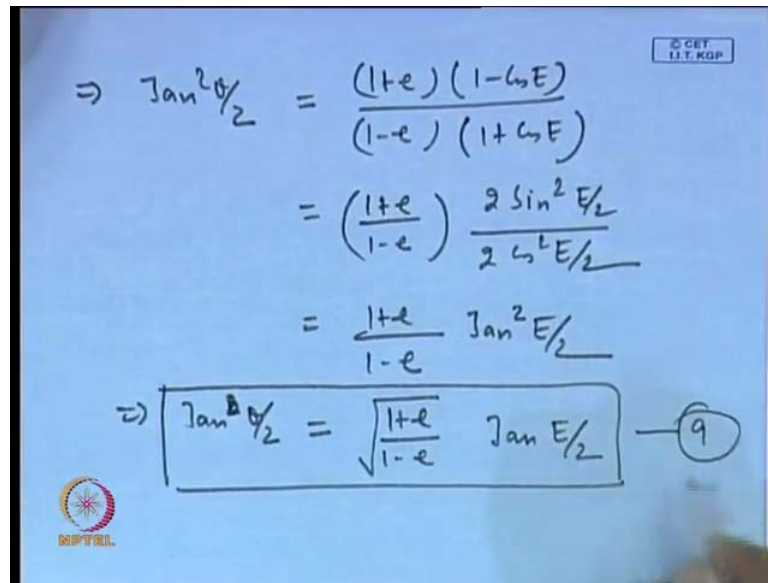 © CET
I.I.T. KGP
⇒ Tan² θ/2 = (1+e) (1-cosE) / (1-e) (1+cosE)
= (1+e / 1-e) 2 Sin² E/2 / 2 cos² E/2
= 1+e / 1-e Tan² E/2
⇒ Tan θ/2 = √(1+e / 1-e) Tan E/2 — 9
NPTEL